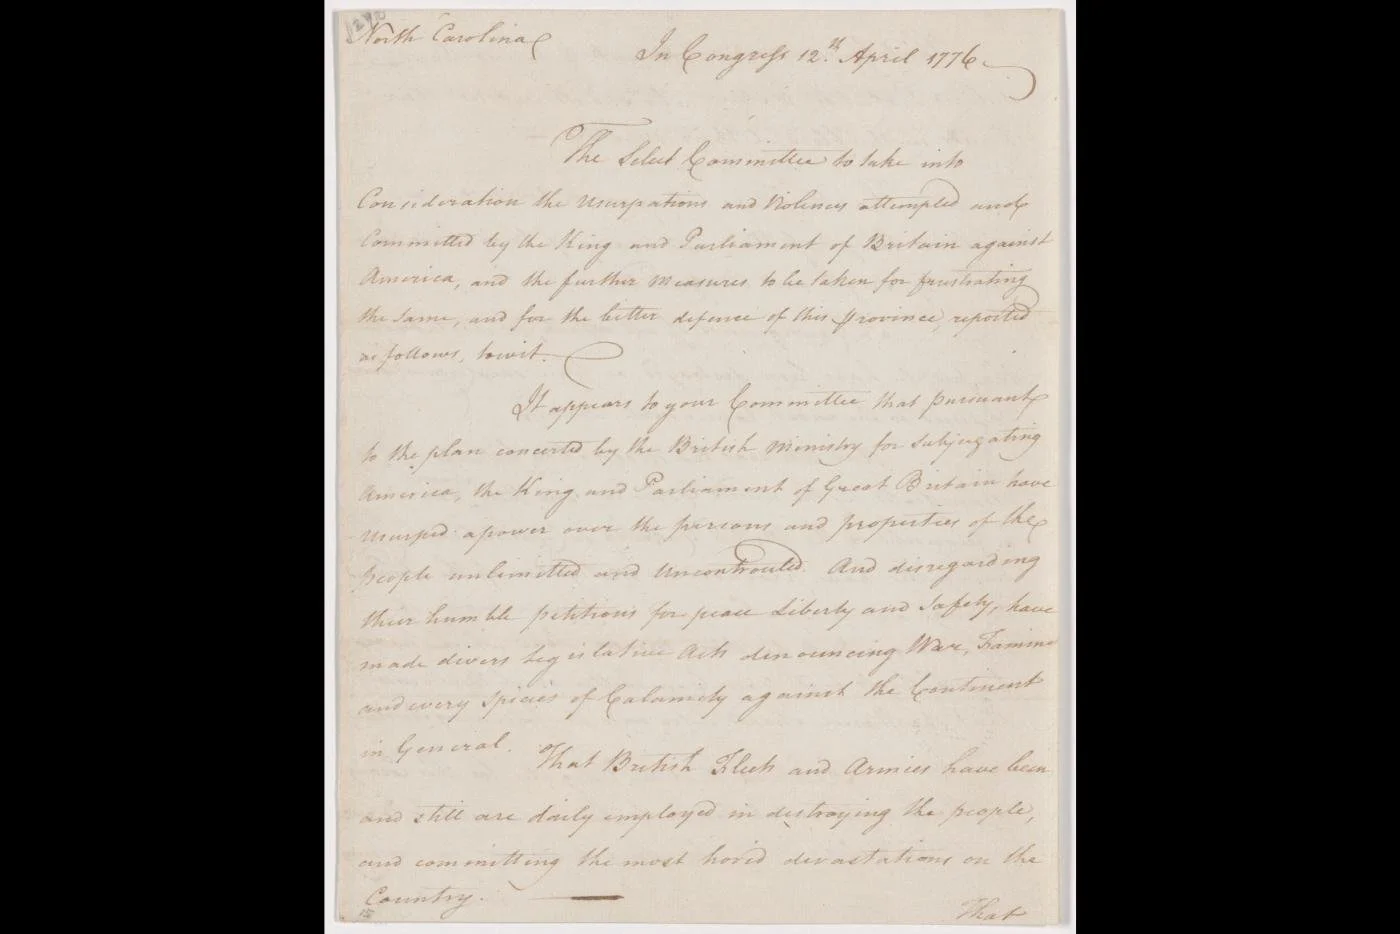 North Carolina
In Congress 12.th April 1776
The Select Committee to take into
Consideration the usurpations and Violences attempted and
Committed by the King and Parliament of Britain against
America, and the further Measures to be taken for frustrating
the same, and for the better defence of this Province, reported
as follows, towit.
It appears to your Committee that pursuant
to the plan concerted by the British Ministry for subjugating
America, the King and Parliament of Great Britain have
usurped a power over the persons and properties of the
people unlimitted and Uncontrouled. And disregarding
their humble petitions for peace Liberty and Safety, have
made divers Legislative Acts denouncing War, Famine
and every species of Calamity against the Continent
in General. That British Fleets and Armies have been
and still are daily employed in destroying the people,
and committing the most horrid devastations on the
Country.
That